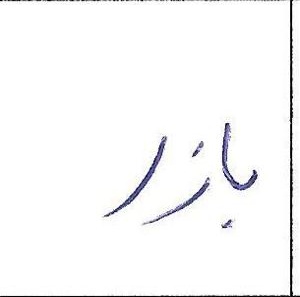 بازر